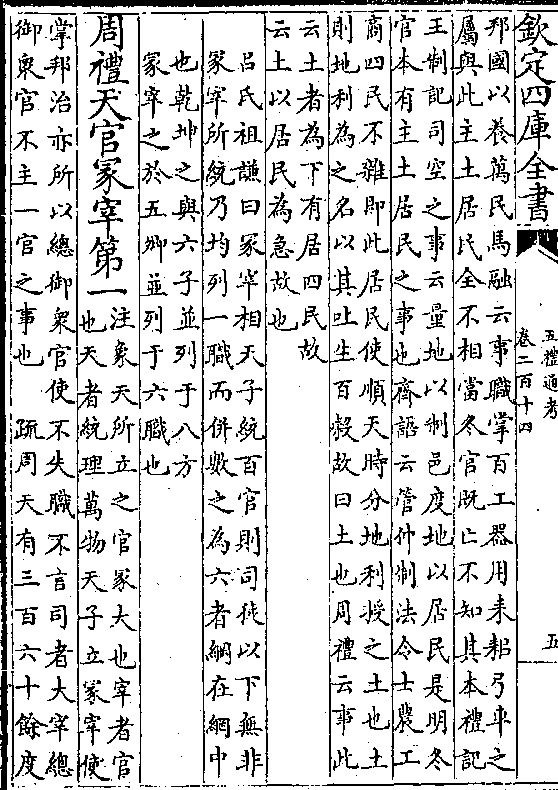 欽定四庫全書
五禮通考
卷二百十四
五
邦國以養萬民馬融云事職掌百工器用耒耜弓車之
屬與此主土居民全不相當冬官既亡不知其本禮記
王制記司空之事云量地以制邑度地以居民是明冬
官本有主土居民之事也齊語云管仲制法令士農工
商四民不雜即此居民使順天時分地利授之土也土
則地利為之名以其吐生百穀故曰土也周禮云事此
云土者為下有居四民故
云土以居民為急故也
吕氏祖謙曰冢宰相天子統百官則司徒以下無非
冢宰所統乃均列一職而併數之為六者綱在網中
也乾坤之與六子並列于八方
冢宰之於五卿並列于六職也
周禮天官冢宰第一
注象天所立之官冢大也宰者官
也天者統理萬物天子立冢宰使
掌邦治亦所以總御衆官使不失職不言司者大宰總
御衆官不主一官之事也
疏周天有三百六十餘度